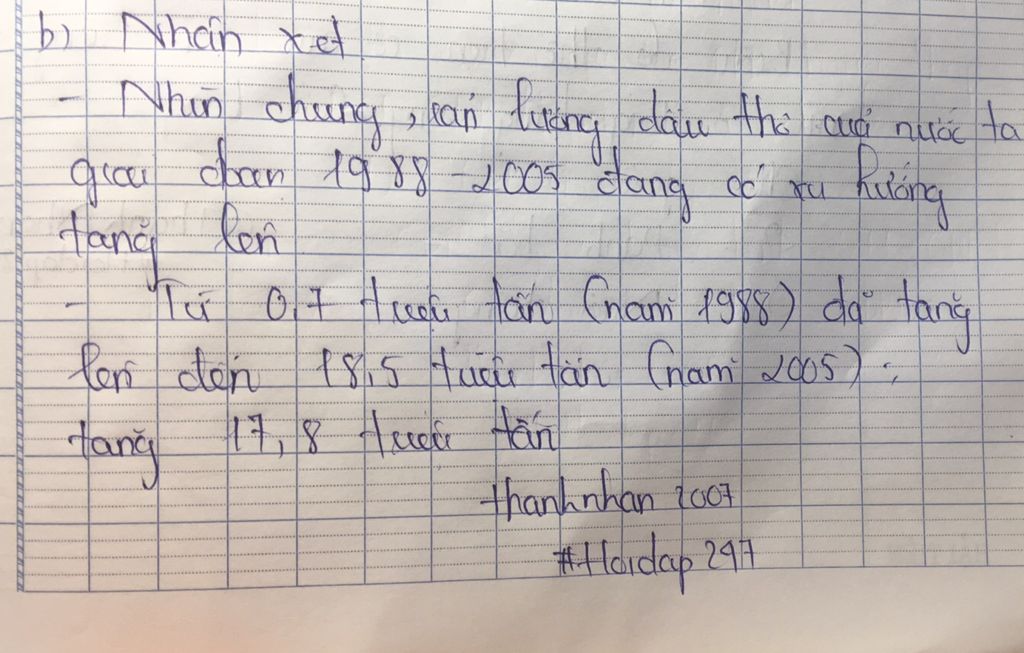 b) Nhận xét
- Nhìn chung, sản lượng dầu thô của nước ta
giai đoạn 1988-2005 đang có xu hướng
tăng lên
- Từ 0,7 triệu tấn (năm 1988) đã tăng
lên đến 18,5 triệu tấn (năm 2005) :
tăng 17,8 triệu tấn
thanhnhan 2007
#Hoidap 247